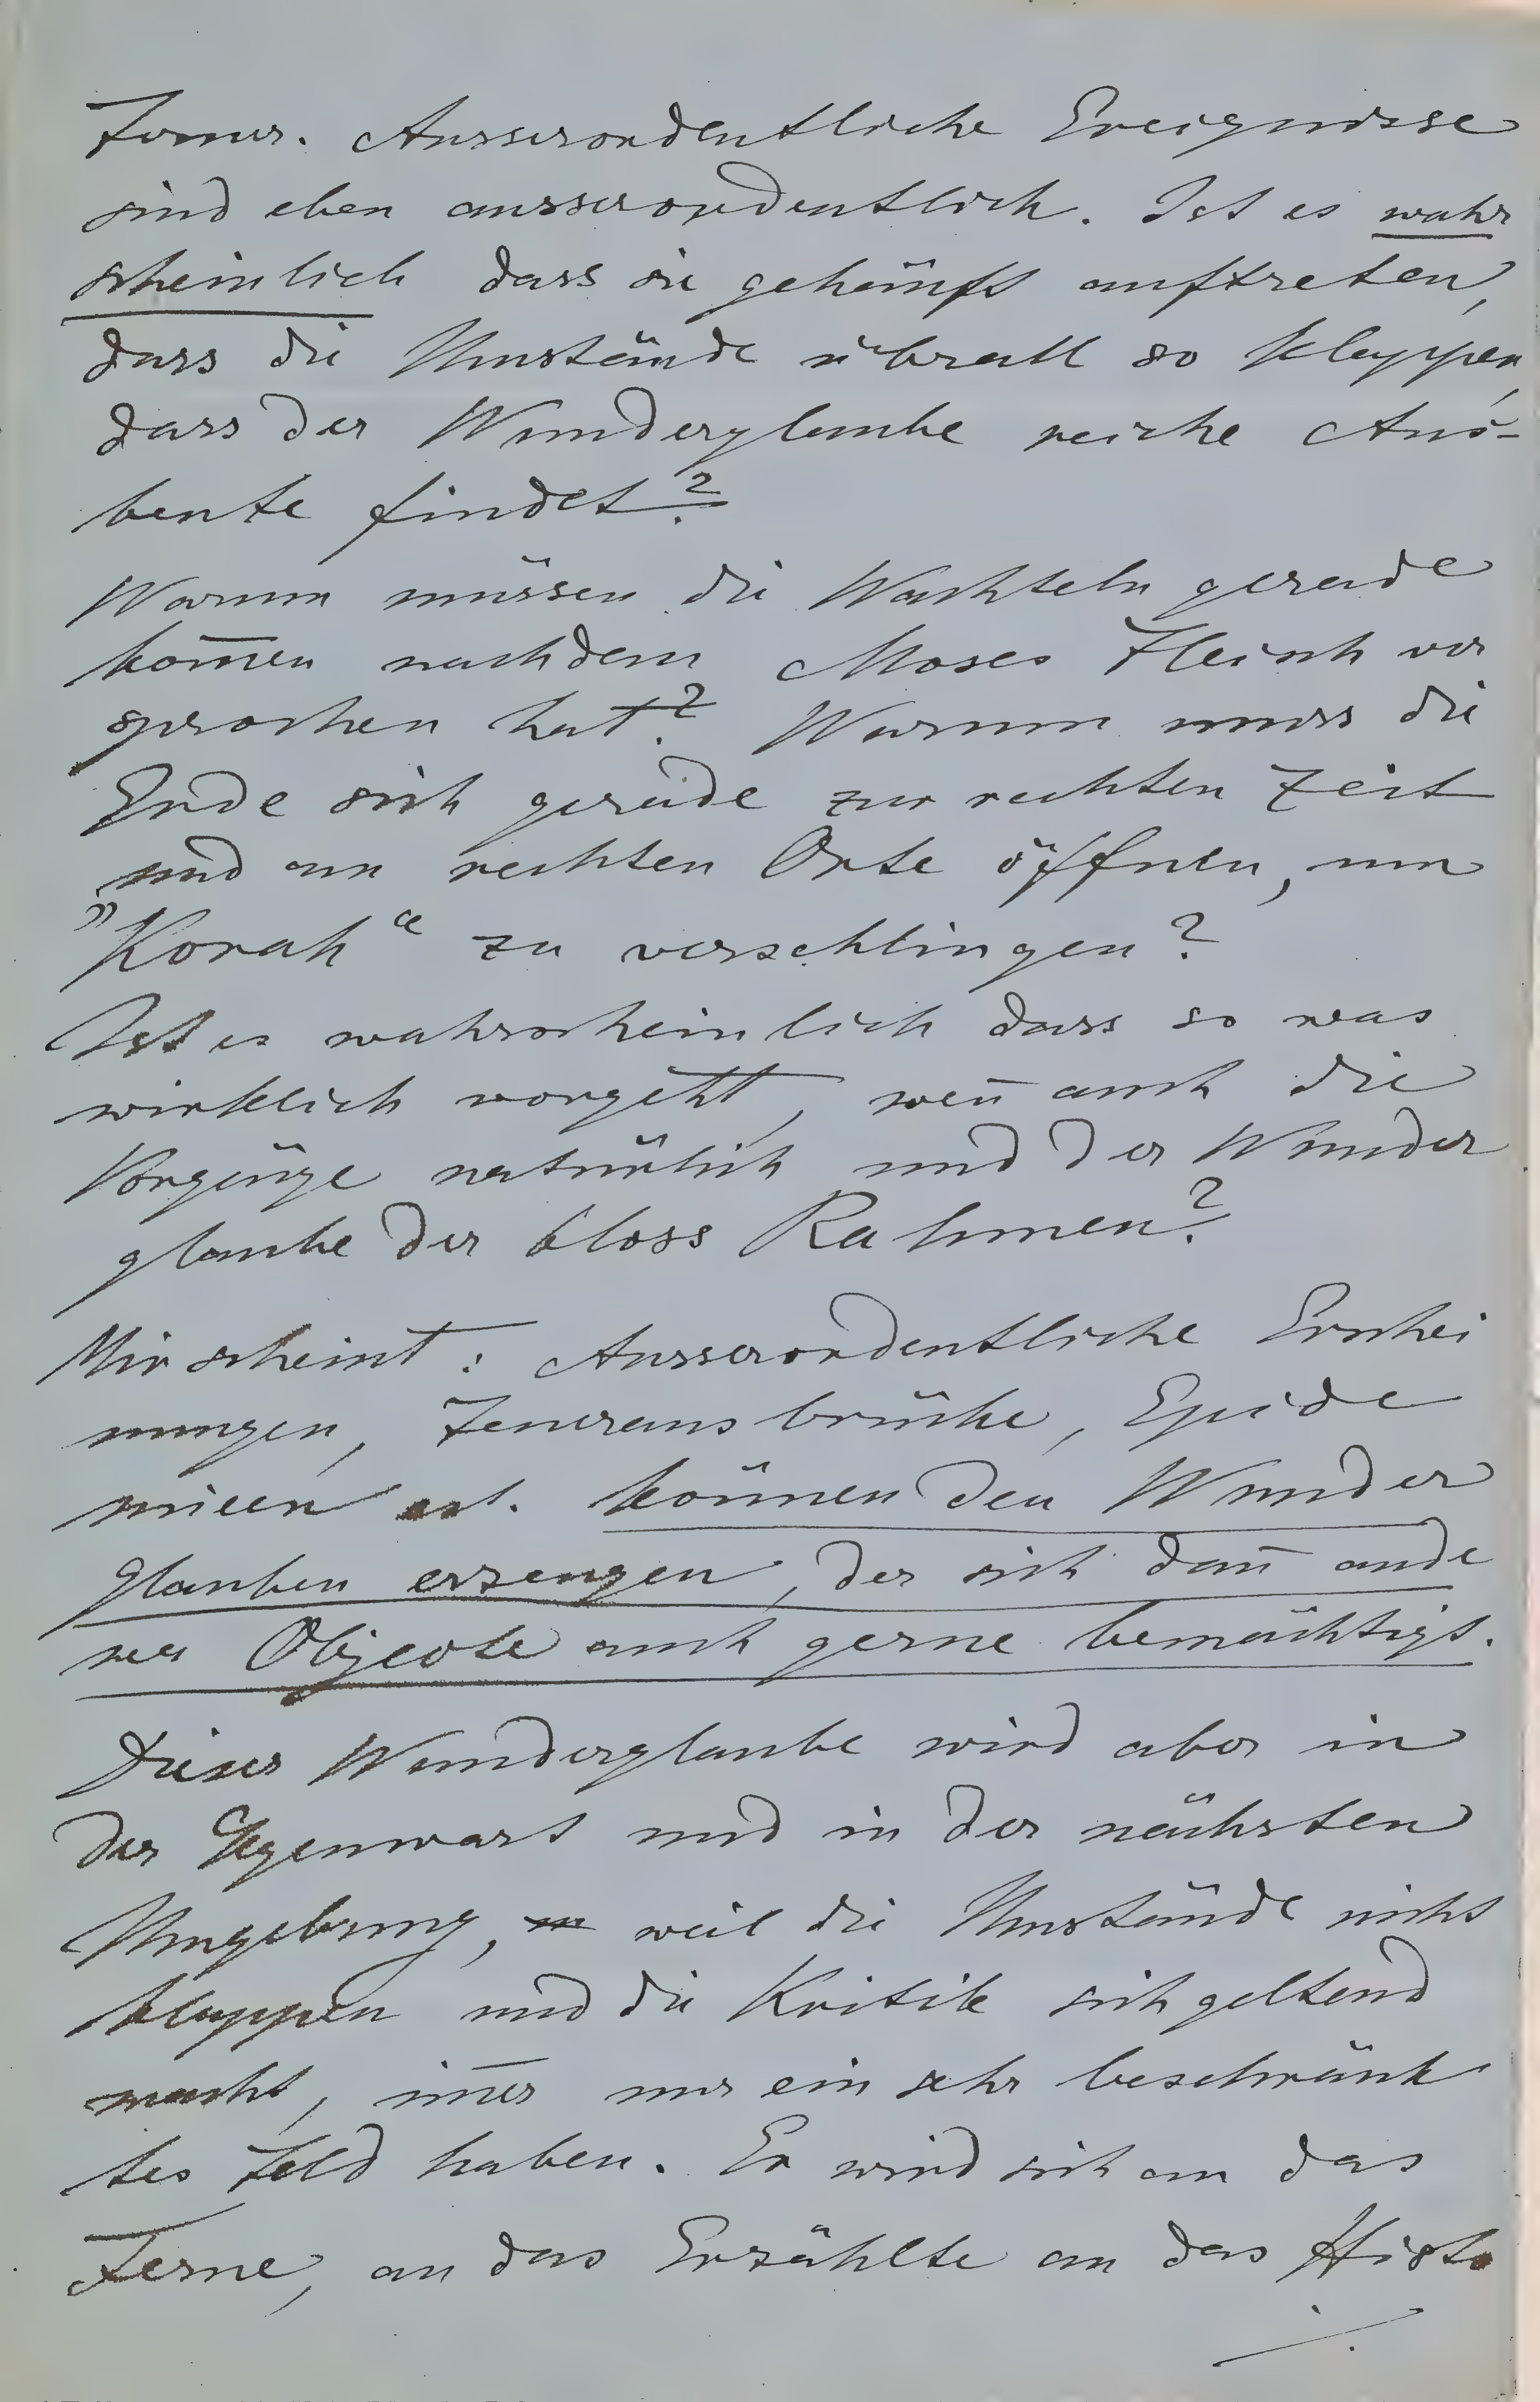 Ferner. Ausserordentliche Ereignisse
sind eben ausserordentlich. Ist es wahr
scheinlich dass sie gehäuft auftreten,
dass die Umstände überall so klappen,
dass der Wunderglaube reiche Aus-
beute findet?
Warum müssen die Wachteln gerade
kom̄en nachdem Moses Fleisch ver
sprochen hat? Warum muss die
Erde sich gerade zur rechten Zeit
und am rechten Orte öffnen, um
„Korah“ zu verschlingen?
Ist es wahrscheinlich dass so was
wirklich vorgeht, wen̄ auch die
Vorgänge natürlich und der Wunder
glaube der bloss Rahmen?
Mir scheint: Ausserordentliche Erschei
nungen, Feuerausbrüche, Epide
mieen etc. können den Wunder
glauben erzeugen, der sich dan̄ ande
rer Objecte auch gerne bemächtigt.
Dieser Wunderglaube wird aber in
der Gegenwart und in der nächsten
Umgebung, weil die Umstände nicht
klappen und die Kritik sich geltend
macht, im̄er nur ein sehr beschränk
tes Feld haben. Er wird sich an das
Ferne, an das Erzählte an das Histo
./.